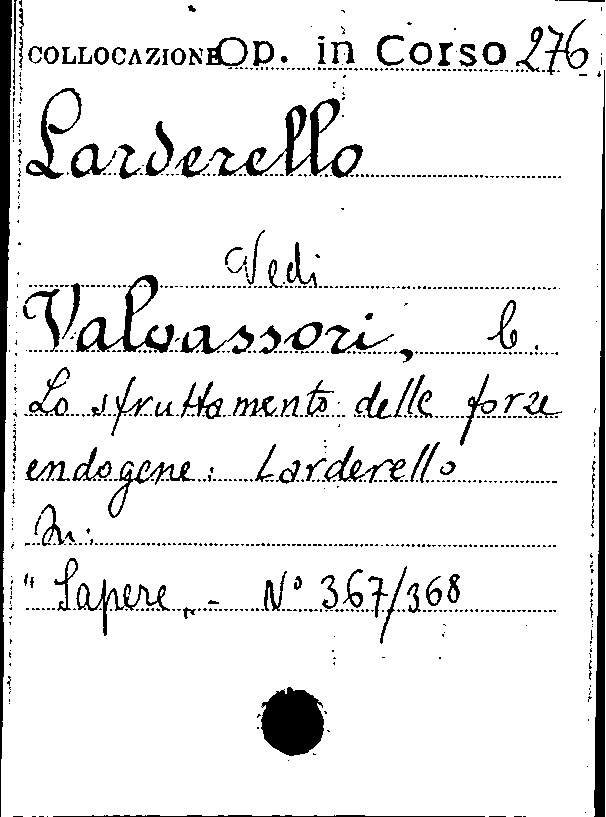 COLLOCAZIONE Op. in Corso 276
Larderello
Vedi
Valvassori, C.
Lo sfruttamento delle forze
endogene: Larderello
In:
"Sapere" - N° 367/368